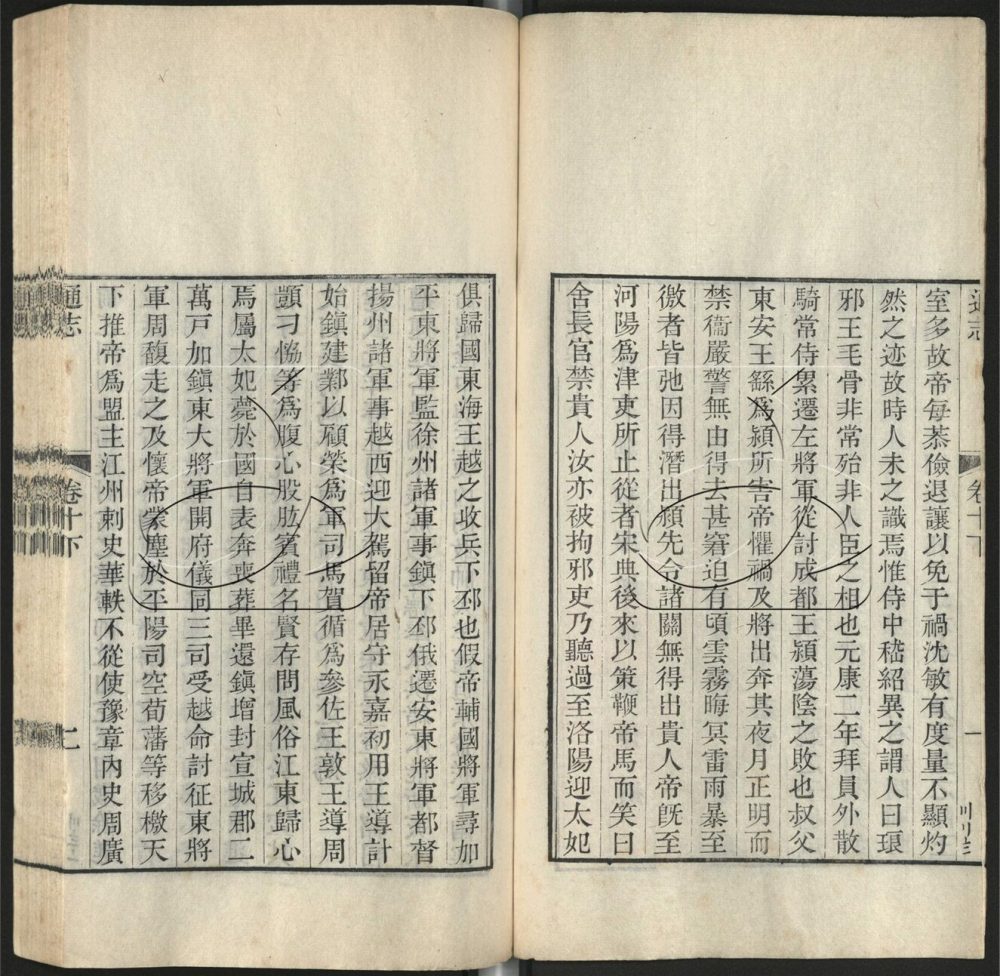 室多故帝每恭儉退讓以免于禍沈敏有度量不顯灼
然之迹故時人未之識焉惟侍中嵇紹異之謂人曰琅
邪王毛骨非常殆非人臣之相也元康二年拜員外散
騎常侍累遷左將軍從討成都王穎蕩陰之敗也叔父
東安王繇爲穎所害帝懼禍及將出奔其夜月正明而
禁衞嚴警無由得去甚窘迫有頃雲霧晦冥雷雨暴至
徼者皆弛因得潛出穎先令諸關無得出貴人帝旣至
河陽爲津吏所止從者宋典後來以策鞭帝馬而笑曰
舍長官禁貴人汝亦被拘邪吏乃聽過至洛陽迎太妃
俱歸國東海王越之收兵下邳也假帝輔國將軍尋加
平東將軍監徐州諸軍事鎮下邳俄遷安東將軍都督
揚州諸軍事越西迎大駕留帝居守永嘉初用王導計
始鎮建鄴以顧榮爲軍司馬賀循爲參佐王敦王導周
顗刁協等爲腹心股肱賓禮名賢存問風俗江東歸心
焉屬太妃薨於國自表奔喪葬畢還鎮增封宣城郡二
萬戸加鎮東大將軍開府儀同三司受越命討征東將
軍周馥走之及懷帝蒙塵於平陽司空荀藩等移檄天
下推帝爲盟主江州刺史華軼不從使豫章內史周廣
通志
卷十下
二